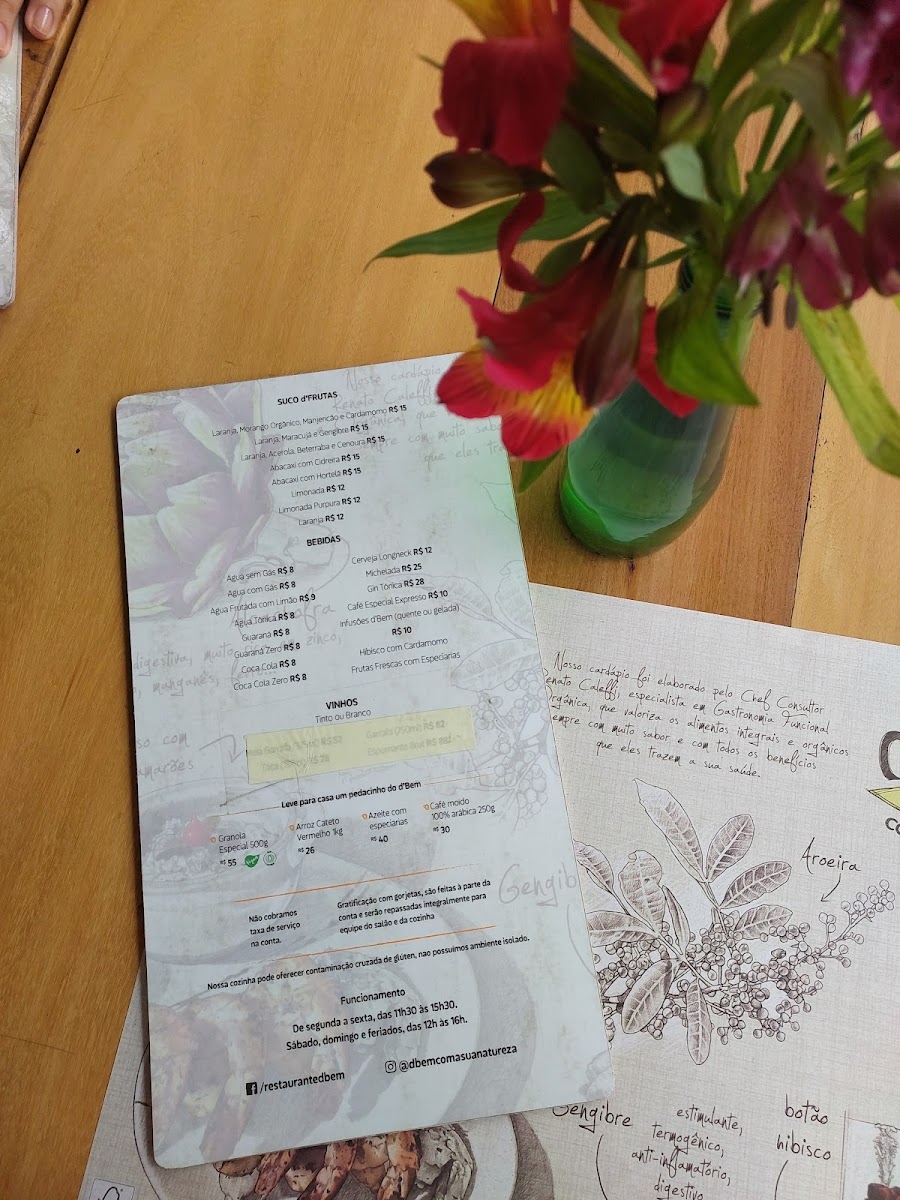 SUCO d'FRUTAS
Laranja, Morango Orgânico, Manjericão e Cardamomo R$ 15
Laranja, Maracujá e Gengibre R$ 15
Laranja, Acerola, Beterraba e Cenoura R$ 15
Abacaxi com Cidreira R$ 15
Abacaxi com Hortelã R$ 15
Limonada R$ 12
Limonada Purpura R$ 12
Laranja R$ 12
BEBIDAS
Água sem Gás R$ 8
Água com Gás R$ 8
Água Frutada com Limão R$ 9
Água Tônica R$ 8
Guaraná R$ 8
Guaraná Zero R$ 8
Coca Cola R$ 8
Coca Cola Zero R$ 8
Cerveja Longneck R$ 12
Michelada R$ 25
Gin Tônica R$ 28
Café Especial Expresso R$ 10
Infusões d'Bem (quente ou gelada)
R$ 10
Hibisco com Cardamomo
Frutas Frescas com Especiarias
VINHOS
Tinto ou Branco
Garrafa (750ml) R$ 82
Espumante Brut R$
Leve para casa um pedacinho do d'Bem
Granola
Especial 500g
R$ 55
Arroz Cateto
Vermelho 1kg
R$ 26
Azeite com
especiarias
R$ 40
Café moído
100% arábica 250g
R$ 30
Não cobramos
taxa de serviço
na conta.
Gratificação com gorjetas, são feitas à parte da
conta e serão repassadas integralmente para
equipe do salão e da cozinha
Nossa cozinha pode oferecer contaminação cruzada de glúten, nao possuímos ambiente isolado.
Funcionamento
De segunda a sexta, das 11h30 às 15h30.
Sábado, domingo e feriados, das 12h às 16h.
/restaurantedbem
@dbemcomasuanatureza
Nosso cardápio
Renato Caleffi
que
com muito sabor
que eles
digestiva, muito
zinco,
manganês,
com
camarões
Gengib
Nosso cardápio foi elaborado pelo Chef Consultor
Renato Caleffi, especialista em Gastronomia Funcional
Orgânica, que valoriza os alimentos integrais e orgânicos
sempre com muito sabor e com todos os benefícios
que eles trazem a sua saúde.
Aroeira
Gengibre
estimulante,
termogênico,
anti-inflamatório,
digestivo
botão
hibisco